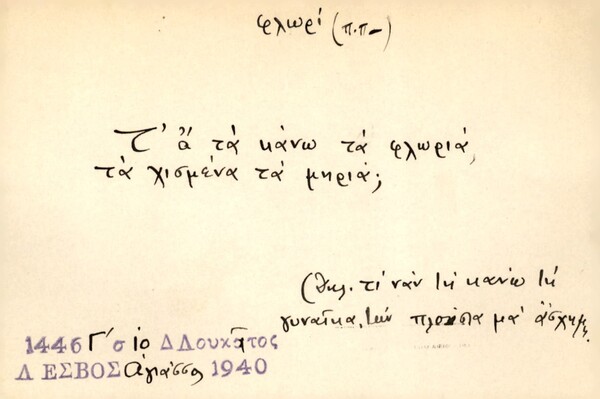 φλωρί (π.π-)
Τ' ἄ τά κάνω τά φλωριά,
τά χισμένα τά μηριά;
(δηλ. τί νάν τή κάνω τή
γυναῖκα, πλούσια μά ἄσχημη.
1446 Γ' σ ΙΟ Δ Λουκᾶτος
ΛΕΣΒΟΣ Ἁγιάσσος 1940